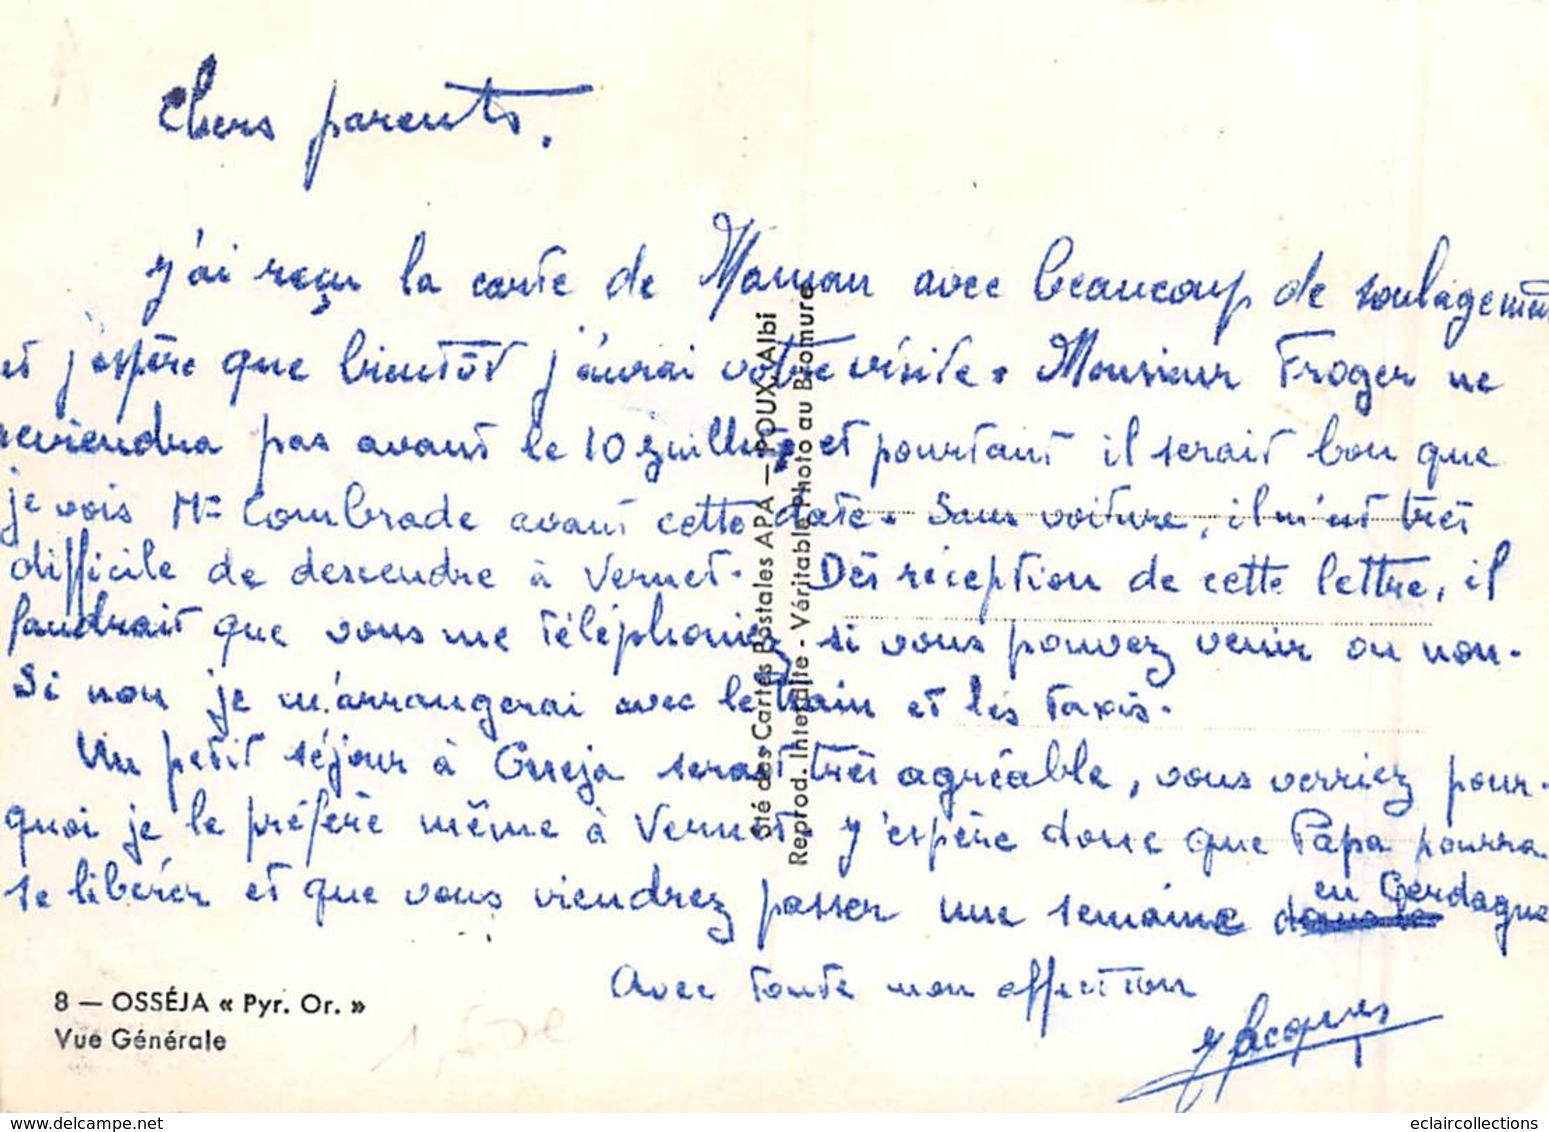 Chers parents.
J'ai reçu la carte de Maman avec beaucoup de soulagement
et j'espère que bientôt j'aurai votre visite. Monsieur Froger ne
reviendra pas avant le 10 juillet, et pourtant il serait bon que
je vois Mr Combrade avant cette date. Sans voiture, il m'est très
difficile de descendre à Vernet. Dès réception de cette lettre, il
faudrait que vous me téléphoniez si vous pouvez venir ou non.
Si non je m'arrangerai avec le train et les taxis.
Un petit séjour à Osseja serait très agréable, vous verriez pour-
quoi je le préfère même à Vernet. J'espère donc que Papa pourra
se libérer et que vous viendrez passer une semaine en Cerdagne
Avec toute mon affection
Jacques
8 — OSSÉJA « Pyr. Or. »
Vue Générale
Sté des Cartes Postales APA — POUX, Albi
Reprod. Interdite - Véritable Photo au Bromure
eclaircollections